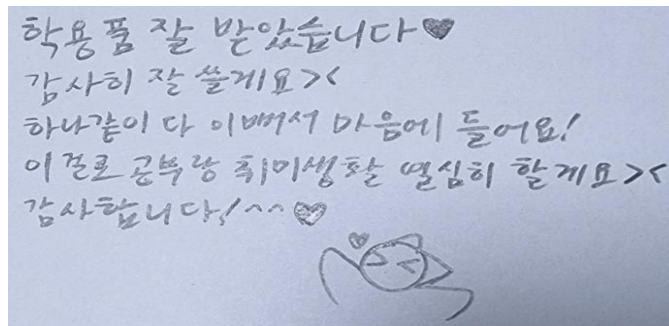 학용품 잘 받았습니다♥
감사히 잘 쓸게요><
하나같이 다 이뻐서 마음에 들어요!
이걸로 공부랑 취미생활 열심히 할게요><
감사합니다!^^♥